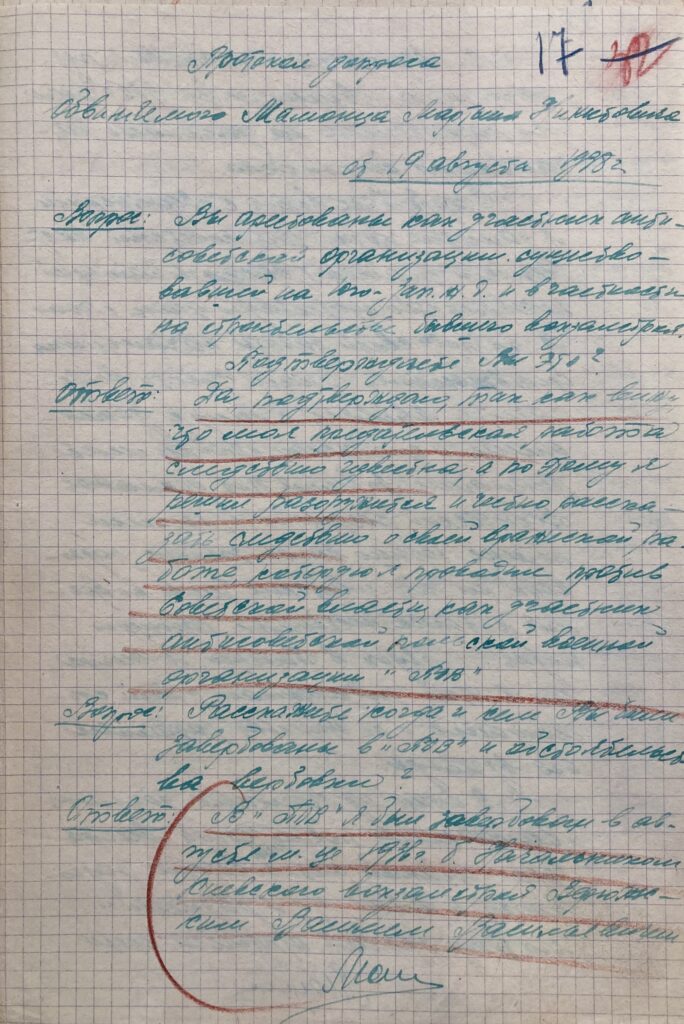 17 32
Протокол допроса
Обвиняемого Мамонца Мартына Никитовича
от 19 августа 1938 г.
Вопрос: Вы арестованы как участник анти-
советской организации, существо-
вавшей на Юго-Зап. ж. д. и в частности
на строительстве бывшего вокзалстроя.
Подтверждаете Вы это?
Ответ: Да, подтверждаю, так как вижу,
что моя предательская работа
следствию известна, а по тому я
решил разоружится и честно расска-
зать следствию о своей вражеской ра-
боте, которую я проводил против
Советской власти, как участник
антисоветской польской военной
организации "ПОВ"
Вопрос: Расскажите когда и кем Вы были
завербованы в "ПОВ" и обстоятельст
ва вербовки?
Ответ: В "ПОВ" я был завербован в ав-
густе м-це 1936 г. б. Начальником
Киевского вокзалстроя
ским Василием Васильевичем